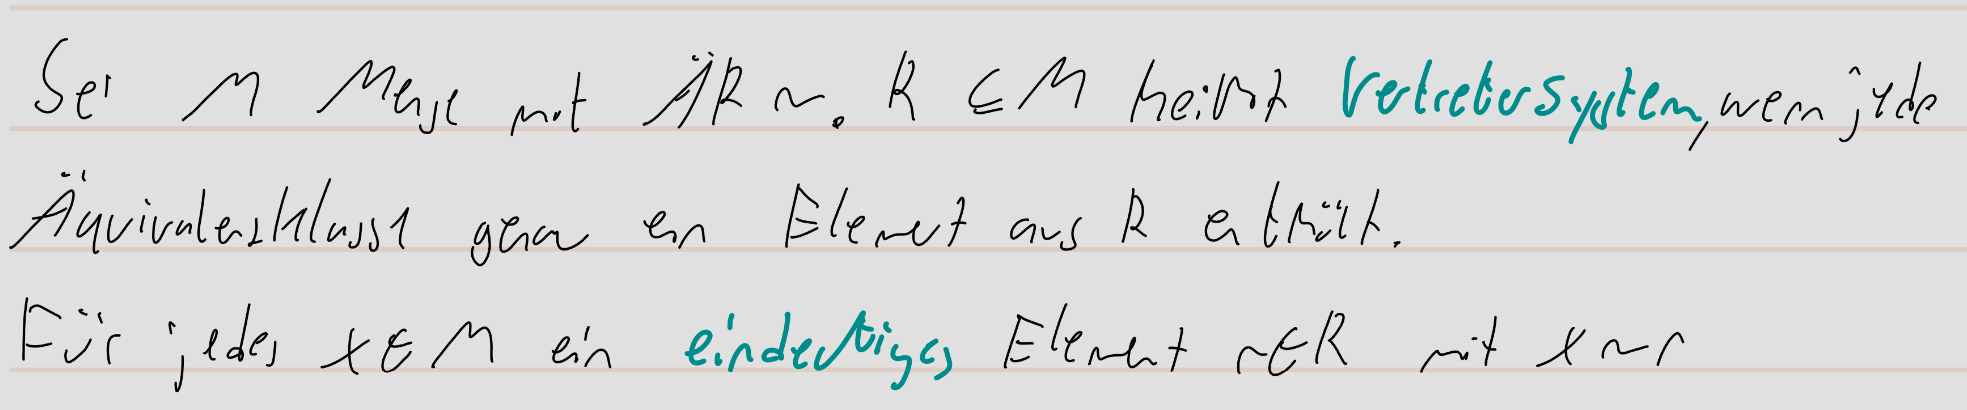 Sei M Menge mit ÄR ~. R ⊆ M heißt Vertretersystem, wenn jede
Äquivalenzklasse genau ein Element aus R enthält.
Für jedes x ∈ M ein eindeutiges Element r ∈ R mit x ~ r